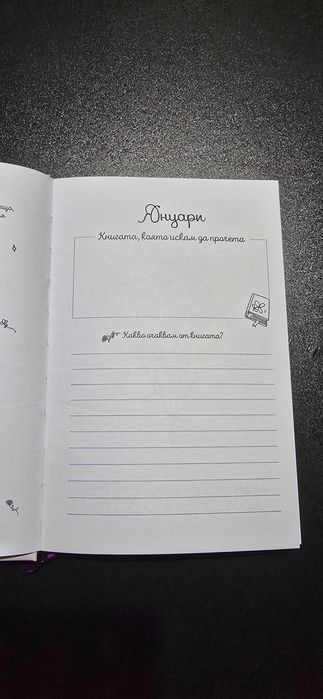 Януари
Книгата, която искам да прочета
Какво очаквам от книгата?